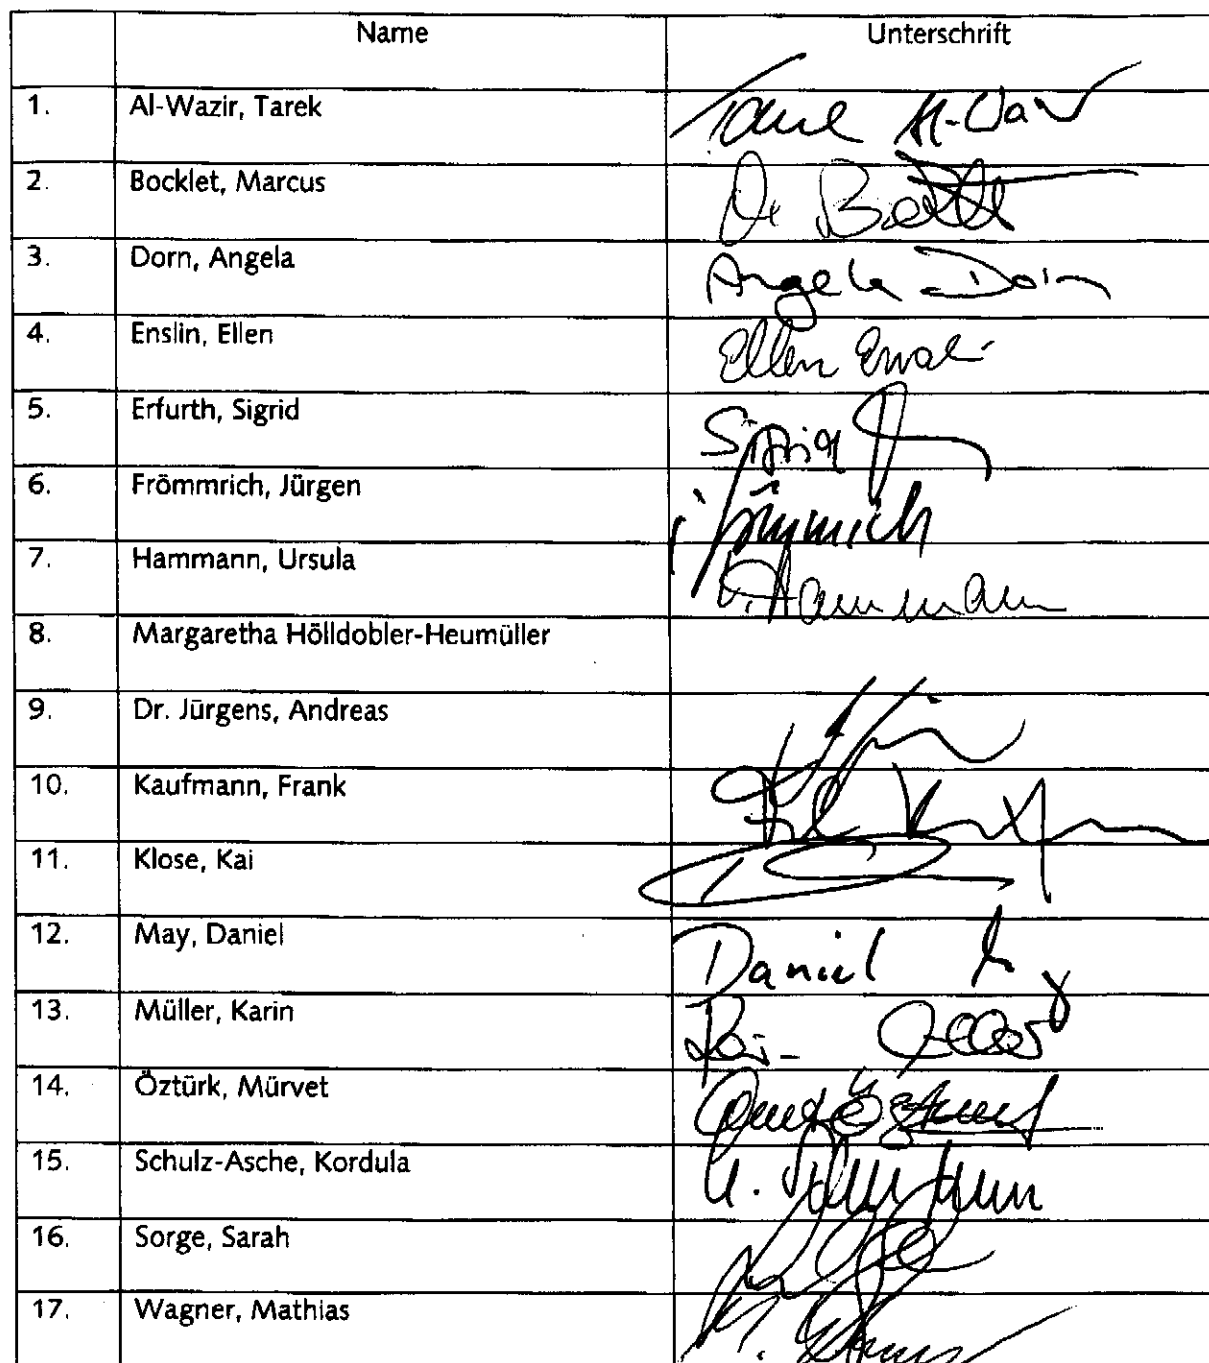 Name Unterschrift
1. Al-Wazir, Tarek
2. Bocklet, Marcus
3. Dorn, Angela Angela Dorn
4. Enslin, Ellen Ellen
5. Erfurth, Sigrid Sigrid
6. Frömmrich, Jürgen Frömmrich
7. Hammann, Ursula U. Hammann
8. Margaretha Hölldobler-Heumüller
9. Dr. Jürgens, Andreas
10. Kaufmann, Frank
11. Klose, Kai
12. May, Daniel Daniel
13. Müller, Karin
14. Öztürk, Mürvet
15. Schulz-Asche, Kordula
16. Sorge, Sarah
17. Wagner, Mathias